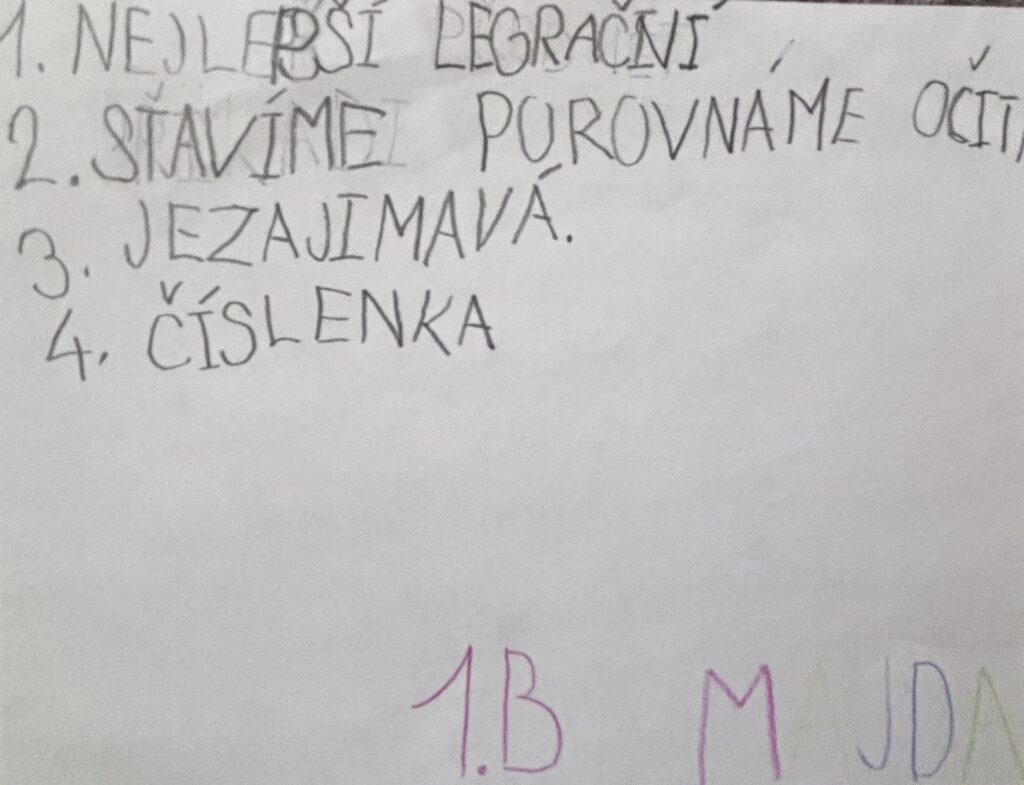 1. NEJLEPŠÍ LEGRAČNÍ
2. SŤAVÍME POROVNÁME
3. JEZAJIMAVÁ.
4. ČÍSLENKA
1.B MAJDA